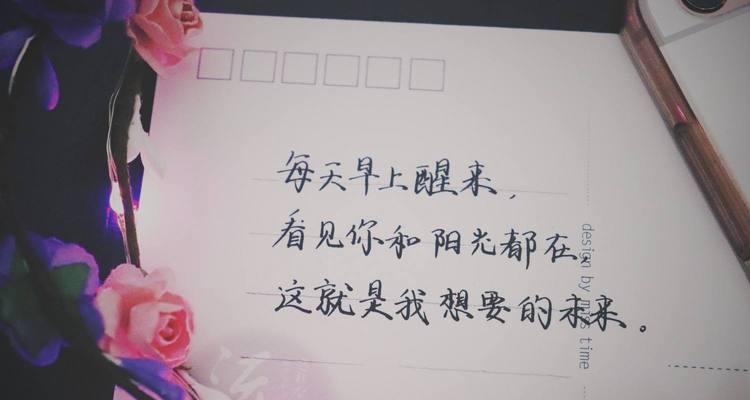 每天早上醒来，
看见你和阳光都在，
这就是我想要的未来。
design by miss time